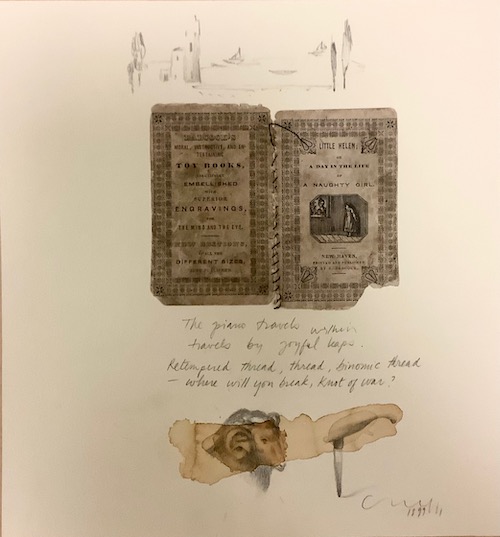 BABCOCK'S
MORAL, INSTRUCTIVE, AND EN-
TERTAINING
TOY BOOKS,
EMBELLISHED
WITH
SUPERIOR
ENGRAVINGS,
FOR
THE MIND AND THE EYE.
NEW EDITIONS,
DIFFERENT SIZES,
LITTLE HELEN;
OR
A DAY IN THE LIFE
OF
A NAUGHTY GIRL.
NEW HAVEN.
PRINTED AND PUBLISHED
BY S. BABCOCK.
The piano travels within
travels by joyful leaps.
Retempered thread, thread, binomic thread
– where will you break, knot of war?